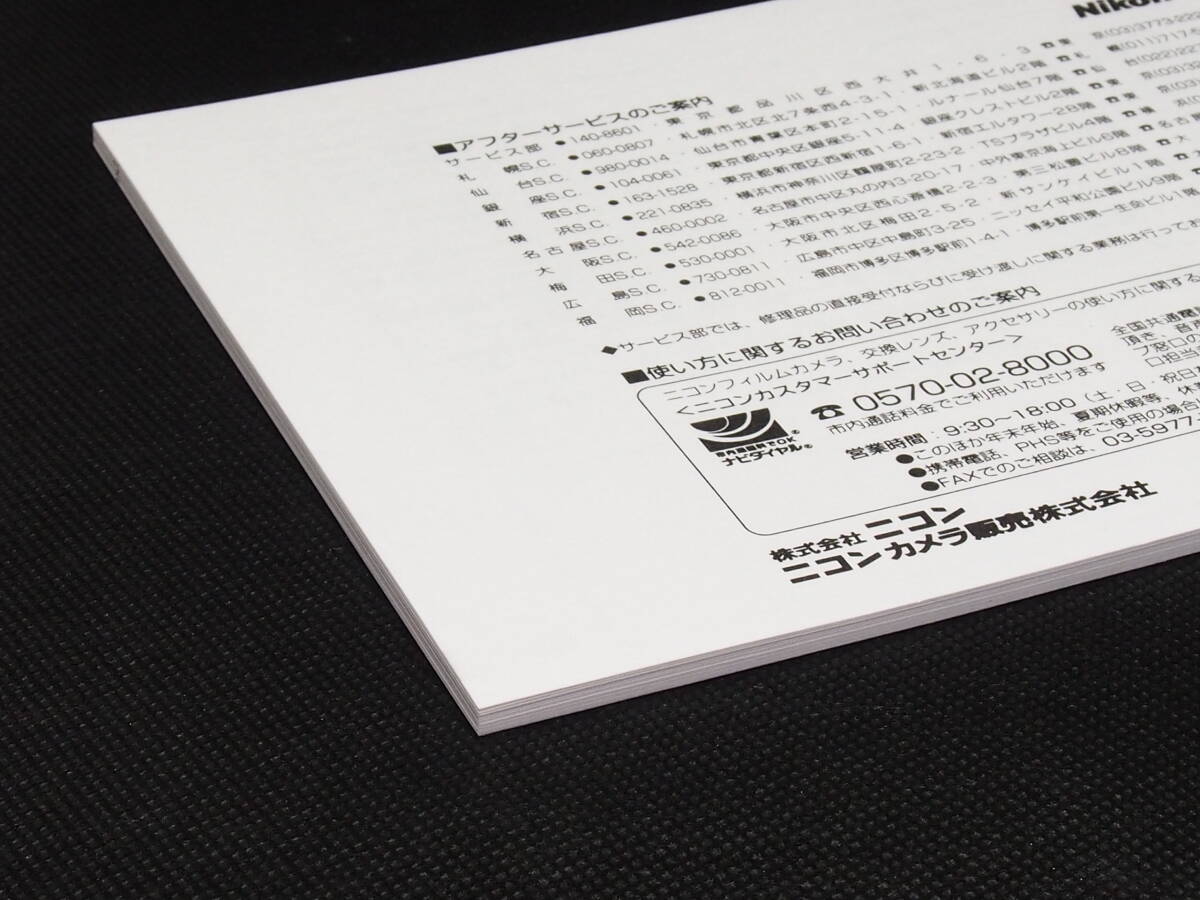 Nikon
■アフターサービスのご案内
サービス部 ●140-8601・東京都品川区西大井1-6-3 ☎東京(03)3773-22
札幌S.C. ●060-0807・札幌市北区北7条西4-3-1・新北海道ビル2階 ☎札幌(011)717-6
仙台S.C. ●980-0014・仙台市青葉区本町2-15-1・ルナール仙台7階 ☎仙台(022)22
銀座S.C. ●104-0061・東京都中央区銀座5-11-4・銀座クレストビル2階 ☎東京(03)
新宿S.C. ●163-1528・東京都新宿区西新宿1-6-1・新宿エルタワー28階 ☎東京(03)
横浜S.C. ●221-0835・横浜市神奈川区鶴屋町2-23-2・TSプラザビル4階 ☎横浜
名古屋S.C. ●460-0002・名古屋市中区丸の内3-20-17・中外東京海上ビル6階 ☎名古
大阪S.C. ●542-0086・大阪市中央区西心斎橋2-2-3・第三松豊ビル8階 ☎大
梅田S.C. ●530-0001・大阪市北区梅田2-5-2・新サンケイビル1階 ☎
広島S.C. ●730-0811・広島市中区中島町3-25・ニッセイ平和公園ビル9階
福岡S.C. ●812-0011・福岡市博多区博多駅前1-4-1・博多駅前第一生命ビル1階
◆サービス部では、修理品の直接受付ならびに受け渡しに関する業務は行って
■使い方に関するお問い合わせのご案内
ニコンフィルムカメラ、交換レンズ、アクセサリーの使い方に関する
<ニコンカスタマーサポートセンター>
☎ 0570-02-8000
市内通話料金でご利用いただけます
市内通話料金でOK
ナビダイヤル®
全国共通電
頂き、音
プ窓口の
口担当
営業時間：9:30～18:00（土・日・祝日
●このほか年末年始、夏期休暇等、休
●携帯電話、PHS等をご使用の場合
●FAXでのご相談は、03-5977-
株式会社 ニコン
ニコンカメラ販売株式会社